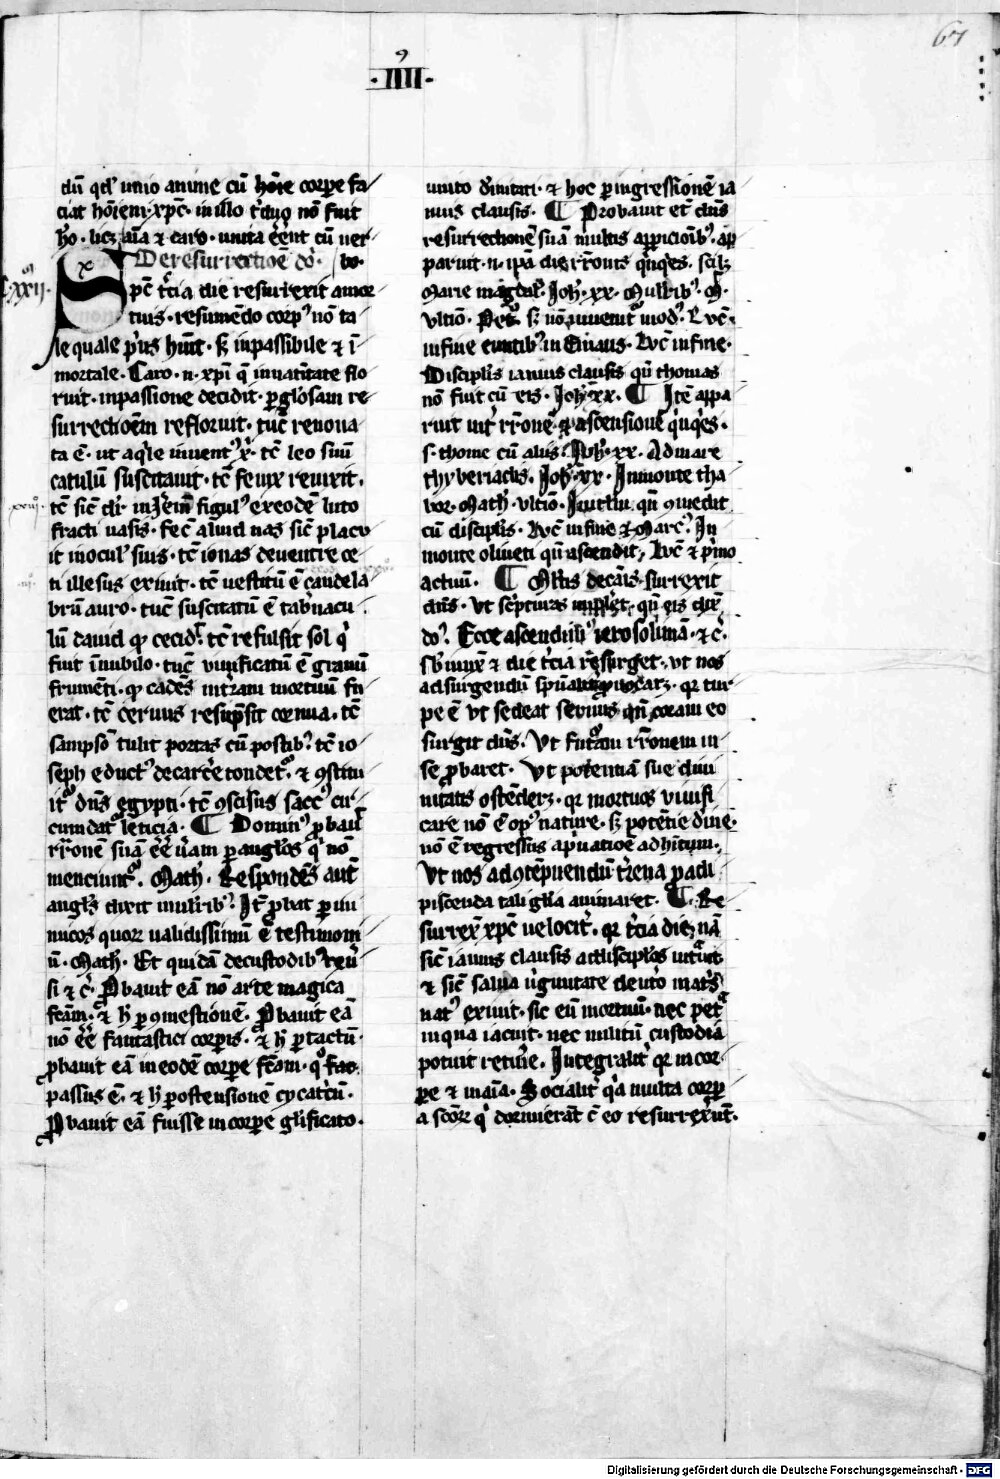 67
9
·IIII·
dū qd' unio anime cū hōīe corpe fa
ciat hōīem· xp̄c· in illo t'duo nō fuit
h'o· licꝫ aīa ⁊ caro· unita eēnt cū uer
De resurrectiōe dō· bo·
xxij·
x
S
pc̄ t'cia die resurrexit amor
tuis· resumēdo corp' nō ta
le quale p'us hūit· sꝫ inpassibile ⁊ ī
mortale· Caro· n· xp̄i q̄
ruit· in passione decidit· p gl'osam re
surrectiōem refloruit· tūc renoua
ta ē· ut aq'le iuuent' tc̄ leo suū
catulū suscitauit· tc̄ fenix reuixit·
tc̄ sic̄ figul' ex eodē luto
fracti uasis· fec̄ aliud uas sic̄ placu
it in ocul' suis· tc̄ ionas de uentre ce
ti illesus exiuit· tc̄ uestitū ē candela
brū auro· tuc suscitatū ē tab'nacu
lū dauid qꝫ cecid'· tc̄ refulsit sol q'
fuit ī nubilo· tūc uiuificatū ē granū
frumēti· qꝫ cadēs in t'ram mortuū fu
erat· tc̄ ceruus resūpsit cornua· tc̄
sampsō tulit portas cū postib'· tc̄ io
seph educt' de carc'e tondet'· ⁊ ꝯstitu
it' dn̄s egypti· tc̄ ꝯscisus sacc' cir
cumdat' leticia· ¶ Domin' p̱bau'
rr̄onē suā eē u'am p angl'os q' nō
menciunt'· Math'· Respondēs aut̄
angl's dixit mulirib'· It̄ p̱bat p mi
nucos quorꝫ ualidissimū ē testimoni
ū· Math'· Et quidā de custodib'
si ⁊ c'· P̱bauit eā nō arte magica
fc̄am· ⁊ h' p ꝯmestionē· P̱bauit eā
nō eē fantastici corpis· ⁊ h' p tactū·
p̱bauit eā in eodē corpe fc̄am· q°
passus ē· ⁊ h' p ostensionē cycat'cū·
P̱bauit eā fuisse in corpe gl'ificato·
unito d'initati· ⁊ hoc p ingressionē ia
nuis clausis· ¶ Probauit et̄ dn̄s
resurrectionē suā multis appicioīb'· ap
paruit· n· ip̄a die rr̄onis q'nq'es· scilꝫ
Marie magdal'· Joh'· xx· Mulirib'· M'·
vltiō· Pet° sꝫ nō inuenit' mod'· Luc̄·
in fine euntib' in Emaus· Luc̄ in fine·
Disciplis ianuis clausis qn̄ thomas
nō fuit cū eis· Joh'· xx· ¶ Itē appa
ruit int' rr̄onē ⁊ ascensionē q'nq'es·
s· thome cū aliis· Joh'· xx· Ad mare
thyberiadis· Joh'· xx· In monte tha
bor· Math'· vltiō· qn̄ ꝯuedit
cū disciplis· Luc̄ in fine ⁊ Marc'· In
monte oliueti qn̄ ascendit, Luc̄ ⁊ p'mo
actuū· ¶ Mltis de cāis· surrexit
dn̄s· Vt sc̄pturas impl'et· qn̄ eis dix'
do'· Ecce ascendim' ierosolimā· ⁊ c'·
⁊ die t'cia resurget· vt nos
ad surgendū quocarꝫ· qr tur
pe ē vt sedeat seruus qn̄ coram eo
surgit dn̄s· Vt futurā rr̄onem in
se p̱baret· Vt potentiā sue diui
nitatis ostēderꝫ· qr mortuos viuifi
care nō ē op' nature· sꝫ potētie d'ine·
nō ē regressus a p'uatiōe ad hitum·
Vt nos ad ꝯtēpnendū t'rena p adi
piscenda tali gl'ia animaret· ¶ Re
surrex' xp̄c velocit'· qr t'cia die, nā
sic̄ ianuis clausis ad discip'los
⁊ sic̄ salua u'ginitate de ut'o mat's
nat' exiuit· sic eū mortuū· nec pet'
in qua iacuit· nec militū custodia
potuit retin'e· Integralit' qr in cor
pe ⁊ in aīa· Socialit' q'a multa corp
a sc̄orꝫ q' dormierāt c̄ eo resurrex'ūt·
Digitalisierung gefördert durch die Deutsche Forschungsgemeinschaft · DFG